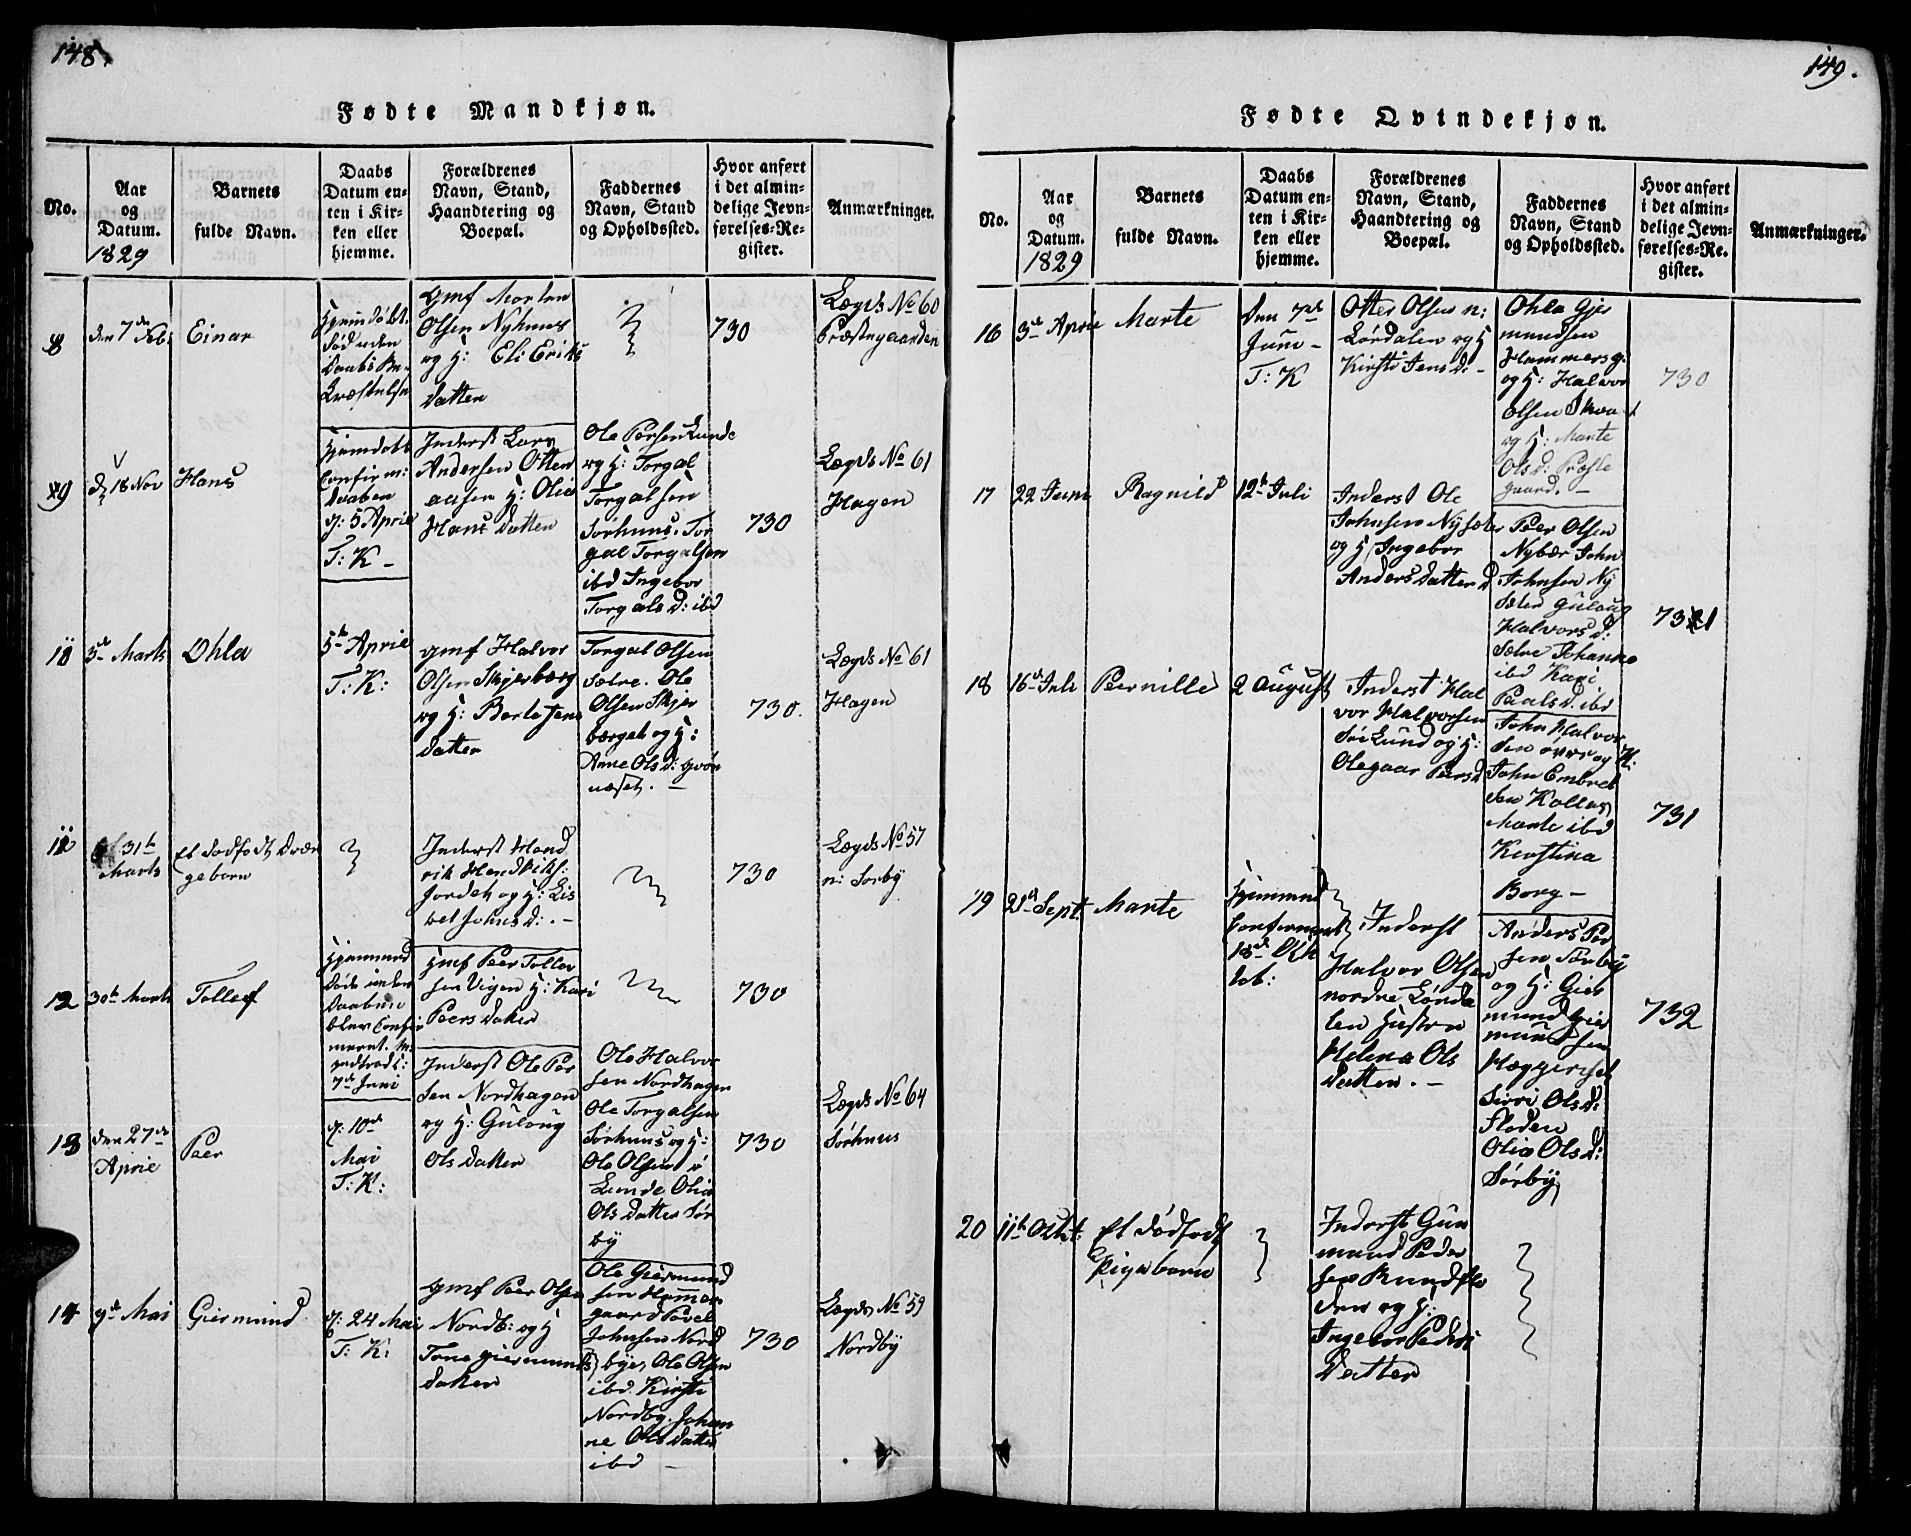 148.
Fødte Mandkjøn.
No.
Aar
og
Datum.
1829
Barnets
fulde Navn.
Daabs
Datum en-
ten i Kir-
ken eller
hjemme.
Forældrenes
Navn, Stand,
Haandtering og
Boepæl.
Faddernes
Navn, Stand
og Opholdssted.
Hvor anført
i det almin-
delige Jevn-
førelses-Re-
gister.
Anmærkninger.
8
den 7de Feb
Einar
Hjemdøbt.
død uden
Daabs Be-
kræftelse
gmf Morten
Olsen Nyhuus
og H: Eli Eriks
datter
730
Lægds No 60
Præstegaarden
9
18 Nov
Hans
Hjemdøbt
Confirm:
Daaben
5 April
T: K -
Inderst Lars
Andersen Otter
aasen H: Olia
Hans datter
Ole Persen Lunde
og H: Torgal
Torgalsen
Sørhuus. Tor
gal Torgalsen
ibd Ingebor
Torgals d: ibd
730
Lægds No 61
Hagen
3de Marts
Ohla
5te April
T: K:
gmf Halvor
Olsen Skjerbærg
og H: Berte Jens
datter
Torgal Olsen
Sælve. Ole
Olsen Skjer
bærget og H:
Anne Ols d: Grøn
næset. -
730.
Lægds No 61
Hagen
31te
Marts
Et dødfødt Dren
gebarn
Inderst Hend
rik Hendriks:
Jordet og H: Lis
bet Johns d: . -
730
Lægds No 57
n: Sorby
12
30te Marts
Tollef
Hjemmed
Døbt uden
Daaben
blev Confir
meret.
7de Juni
gmf Peer Tollev
sen Vigen H: Kari
Peers datter
730
13
den 27de
April
Peer
10de
Mai
T: K:
Inderst Ole Per
sen Nordhagen
og H: Gulaug
Ols datter
Ole Halvor
sen Nordhagen
Ole Torgalsen
Sørhuus og H:
Ole Olsen i
Lunde Olia
Ols datter Sør
by
730
Lægds No 64
Sørhuus
14
9de Mai
Giermund
24 Mai
T: K:
gmf Peer Olsen
Nordb: og H
Tone Giermunds
datter
Ole Giermund
sen Hammers
gaard Povel
Johnsen Nord
bye, Ole Olsen
ibd. Kirsti
Nordby. Johan
ne Ols datter
ibd -
730
Lægds No 59
Nordby
149.
Fødte Qvindekjøn.
No.
Aar
og
Datum.
1829
Barnets
fulde Navn.
Daabs
Datum en-
ten i Kir-
ken eller
hjemme.
Forældrenes
Navn, Stand,
Haandtering og
Boepæl.
Faddernes
Navn, Stand
og Opholdssted.
Hvor anført
i det almin-
delige Jevn-
førelses-Re-
gister.
Anmærkninger.
16
3de April
Marte
den 7de
Juni -
T: K
Otter Olsen n:
Lørdalen og H
Kirsti Jens d: -
Ohla Gjer
mundsen
Hammersg.
og H: Halvor
Olsen
og H: Marte
Ols d: Præste
gaard. -
730
17
22 Juni
Ragnild
12te Juli
Inderst Ole
Johnsen Nysæter
og H Ingebor
Anders datter
Peer Olsen
Nybær John
Johnsen Ny
sæter Gulaug
Halvors d:
Sælve Johanne
ibd Kari
Paals d. ibd
731
18
16de Juli
Peernille
2 August
Inderst Hal
vor Halvorsen
Lund og H:
Olegaar Peers d
John Halvor
sen øvre og H:
John Embret
sen Kollos
Marte ibd
Kirstina
Borg -
731
19
21de Sept.
Marte
Hjemmed
Confirmeret
18de Okt
tob:
Inderst
Halvor Olsen
nordre Lørda
len Hustru
Helena Ols
datter. -
Anders Per
sen Sørby
og H: Gier
mund Gier
mundsen
Hæggeriset
Sirri Ols d:
Floden
Olia Ols d:
Sørby
732
20
11te Octbr:
Et dødfødt
Pigebarn
Inderst Gun
mund Peder
sen Rundflo
den og H:
Ingebor Peders
Datter